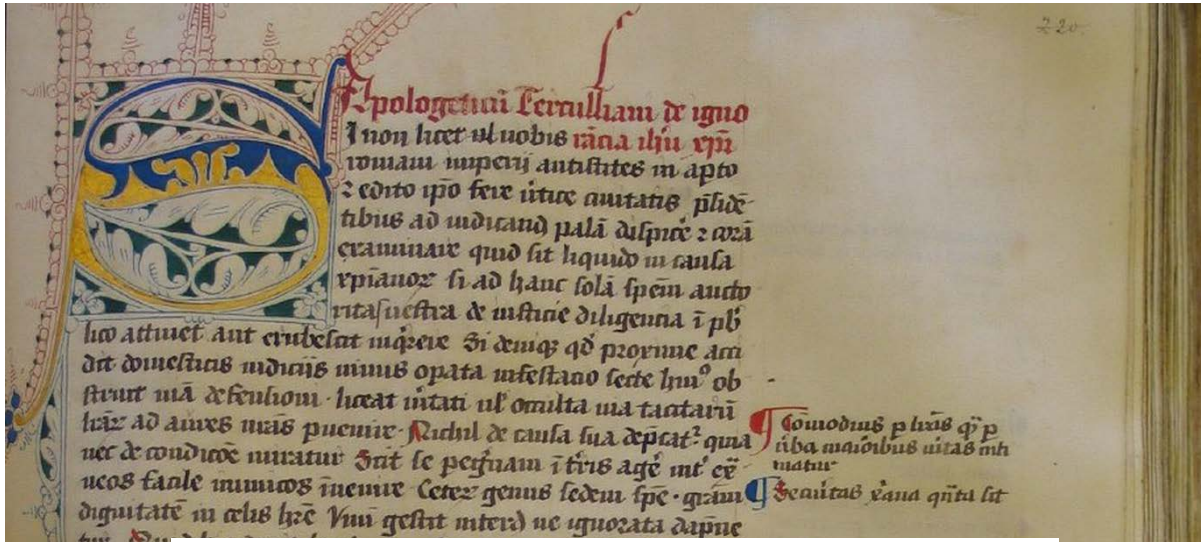 220
Apologeticū Tertulliani de igno
I non licet uł uobis rācia ihū xp̄i
romani imperii antistites in apto
⁊ edito ip̄o fere ũtice ciuitatis p̄sidē
tibus ad iudicand palā dispice ⁊ corā
examinare quid sit liquido in causa
xp̄ianoꝝ si ad hanc solā spēm aucto
ritas uestra de iusticie diligencia ī pb
lico attinet aut erubescit inq̄rere Si deniqꝫ qd̄ proxime acci
dit domesticis iudiciis nimis opata infestacio secte huiꝰ ob
struit uiā defensioni · liceat ũitati uł occulta uia tacitarū
lr̄aꝝ ad aures ur̄as puenire · Nichil de causa sua dep̄catʳ quia
nec de condicōe miratur Scit se peg̃nam ī t̃ris agē int̉ ex̄
neos facile inimicos īuenire Ceteꝝ genus sedem spē · grām
dignitatē in celis hr̄e Vnū gestit interd ne ignorata dāpne
Comodius p lr̄as qꝫ p
ũba maioribus ueritas inti
matur
Secũitas xiana qn̄ta sit